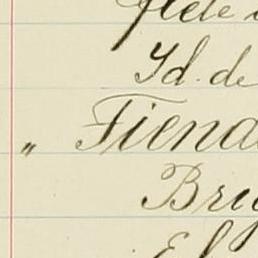 flete
Id. de
" Fiend
Bru
El